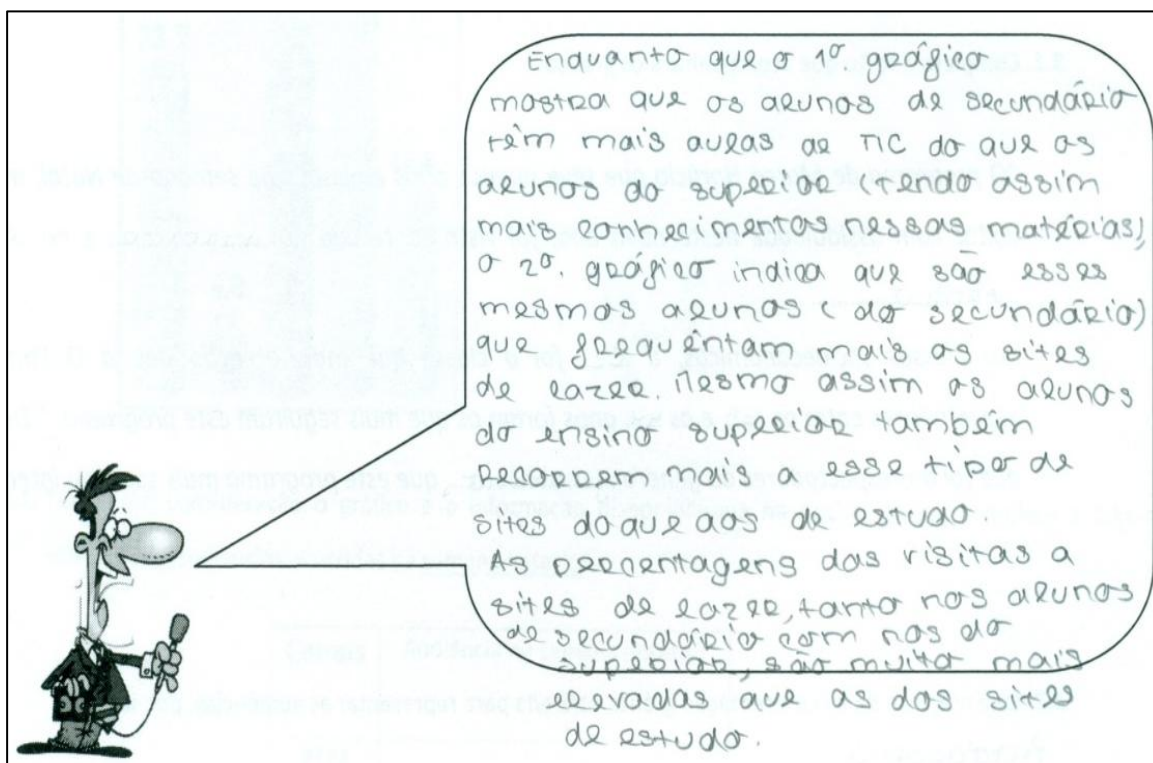 Enquanto que o 1º gráfico
mostra que os alunos de secundário
têm mais aulas de TIC do que os
alunos do superior (tendo assim
mais conhecimentos nessas matérias),
o 2º. gráfico indica que são esses
mesmos alunos (do secundário)
que frequêntam mais os sites
de lazer. Mesmo assim os alunos
do ensino superior também
recorrem mais a esse tipo de
sites do que aos de estudo.
As percentagens das visitas a
sites de lazer, tanto nos alunos
de secundário com nos do
superior, são muito mais
elevadas que as dos sites
de estudo.